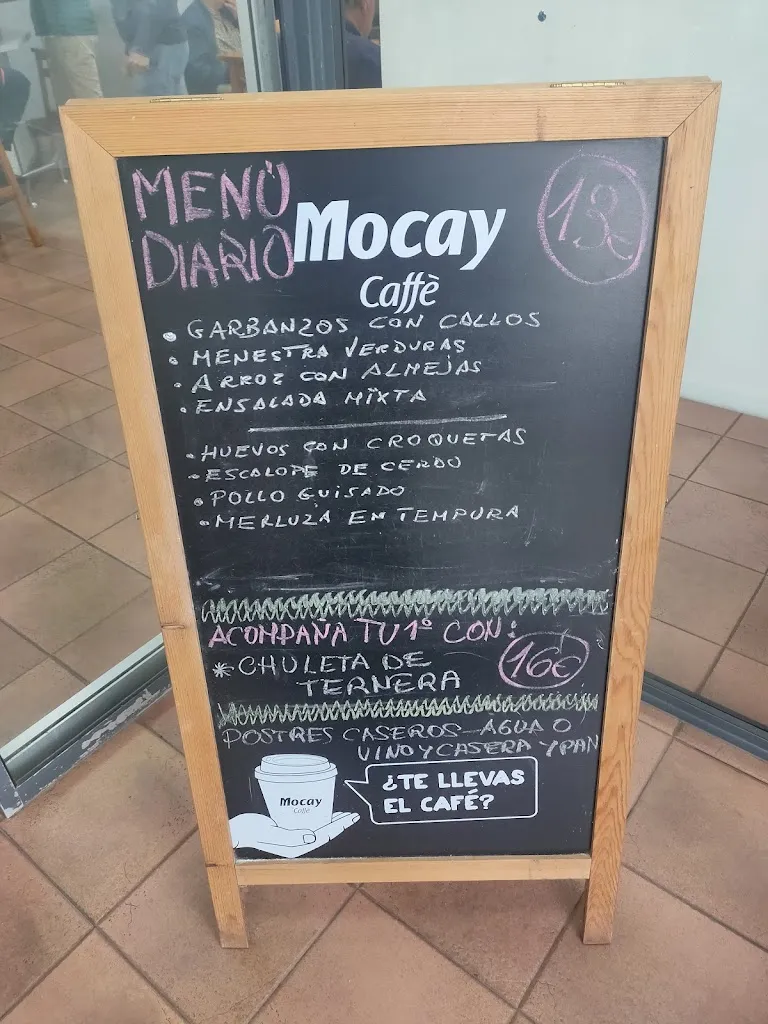 MENÚ
DIARIO
Mocay
Caffè
13€
• GARBANZOS CON CALLOS
• MENESTRA VERDURAS
• ARROZ CON ALMEJAS
• ENSALADA MIXTA
• HUEVOS CON CROQUETAS
• ESCALOPE DE CERDO
• POLLO GUISADO
• MERLUZA EN TEMPURA
ACOMPAÑA TU 1º CON:
* CHULETA DE
TERNERA
16€
POSTRES CASEROS - AGUA O
VINO Y CASERA Y PAN
Mocay
Caffè
¿TE LLEVAS
EL CAFÉ?